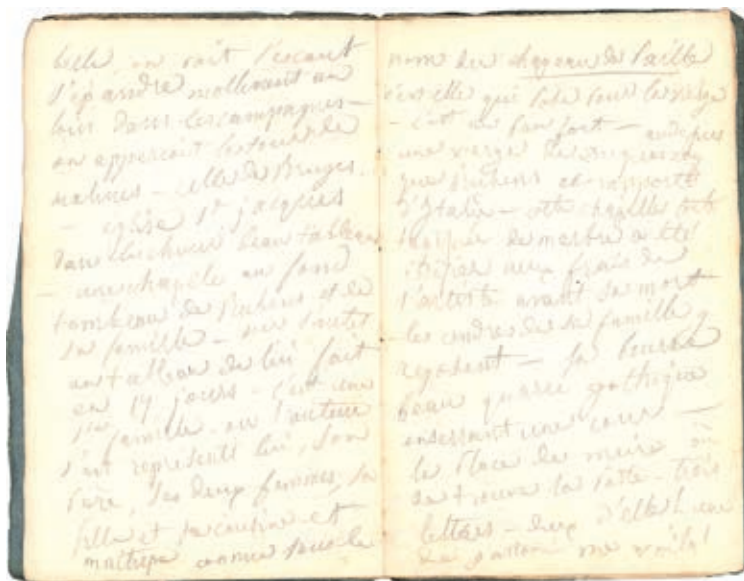 belle on voit l'escaut
s'épandre mollement au
loin dans les campagnes —
on apperçoit la tour de
malines — celle de Bruges.
— eglise St jacques
dans le choeur beau tableau
— une chapelle au fond
tombeau de Rubens et de
sa famille — sur l'autel
un tableau de lui fait
en 17 jours — c'est une
Ste famille — ou l'auteur
s'est représenté lui, son
Père, ses deux femmes, sa
fille et sa cousine — et
maitresse connue sous le
nom du chapeau de Paille
c'est elle qui pose pour la vierge
— c'est un peu fort — au dessus
une vierge de
que Rubens a rapporté
d'Italie — cette chapelle toute
de marbre a été
aux frais de
l'artiste avant sa mort
— les cendres de sa famille y
reposent — la bourse
beau quarré gothique
enserrant une cour —
la Place de meir où
se trouve la Poste — trois
lettres — deux d'elle! une
de me voilà!